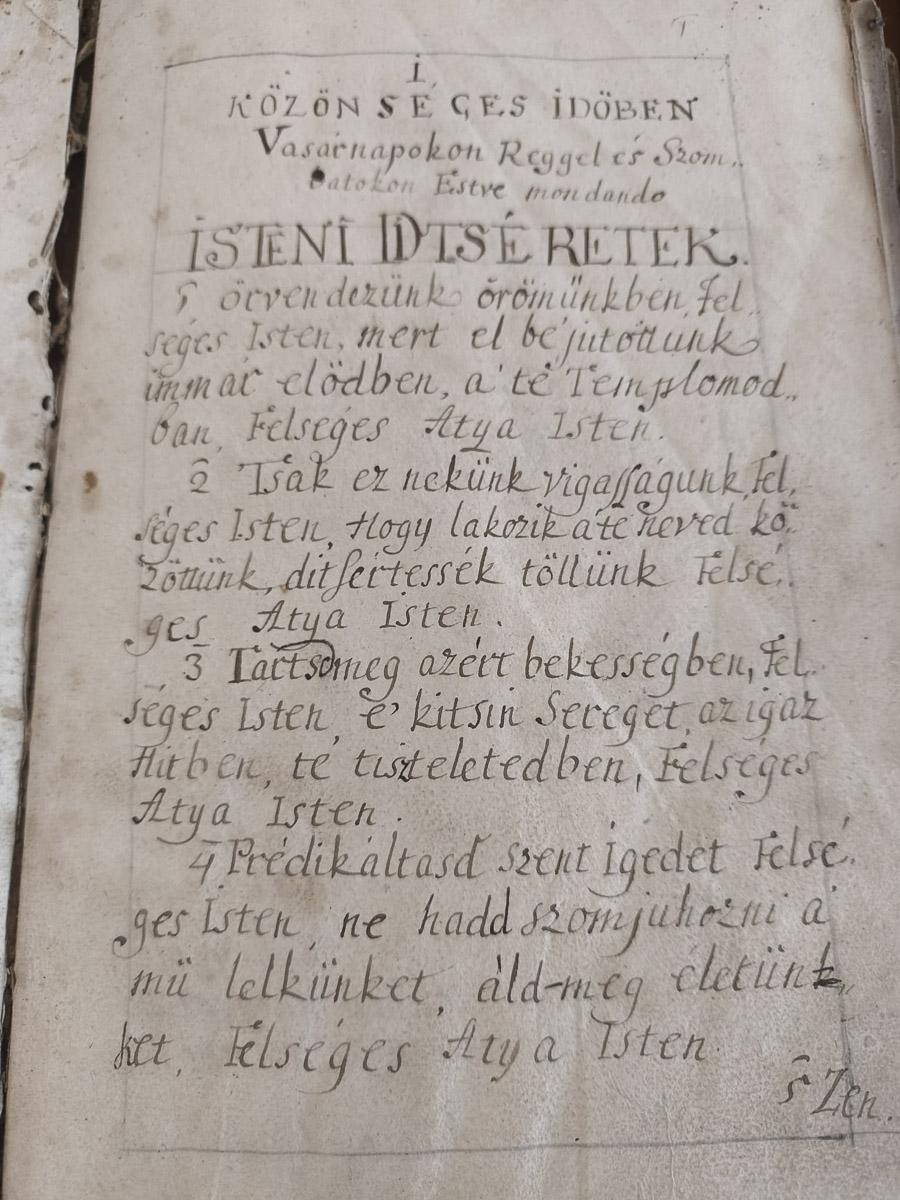 I.
KÖZÖNSÉGES IDÖBEN
Vasárnapokon Reggel és Szom„
batokon Estve mondando
ISTENI DITSÉRETEK.
örvendezünk örömünkben, Fel„
séges Isten, mert el bé jutottunk
immár elödben, a' te Templomod„
ban, Felséges Atya Isten.
2 Tsak ez nekünk vigaſſágunk, Fel„
séges Isten, Hogy lakozik a te neved kö„
zöttünk, ditsértessék töllünk Felsé„
ges Atya Isten.
3 Tartsd meg azért bekességben, Fel„
séges Isten, e' kitsin Sereget, az igaz
Hitben, te tiszteletedben, Felséges
Atya Isten.
4 Prédikáltasd szent Igedet Felsé„
ges Isten, ne hadd szomjuhozni a'
mü lelkünket, áld-meg életünk„
ket, Felséges Atya Isten.
5 Zen.